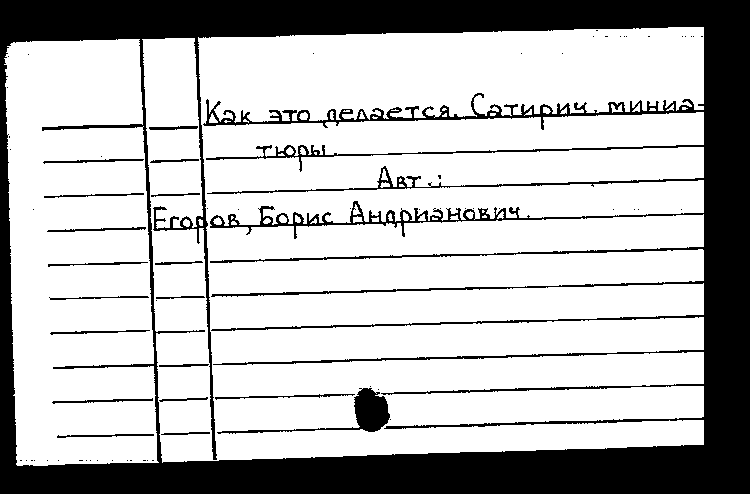 Как это делается. Сатирич. миниа-
тюры.
Авт.:
Егоров, Борис Андрианович.